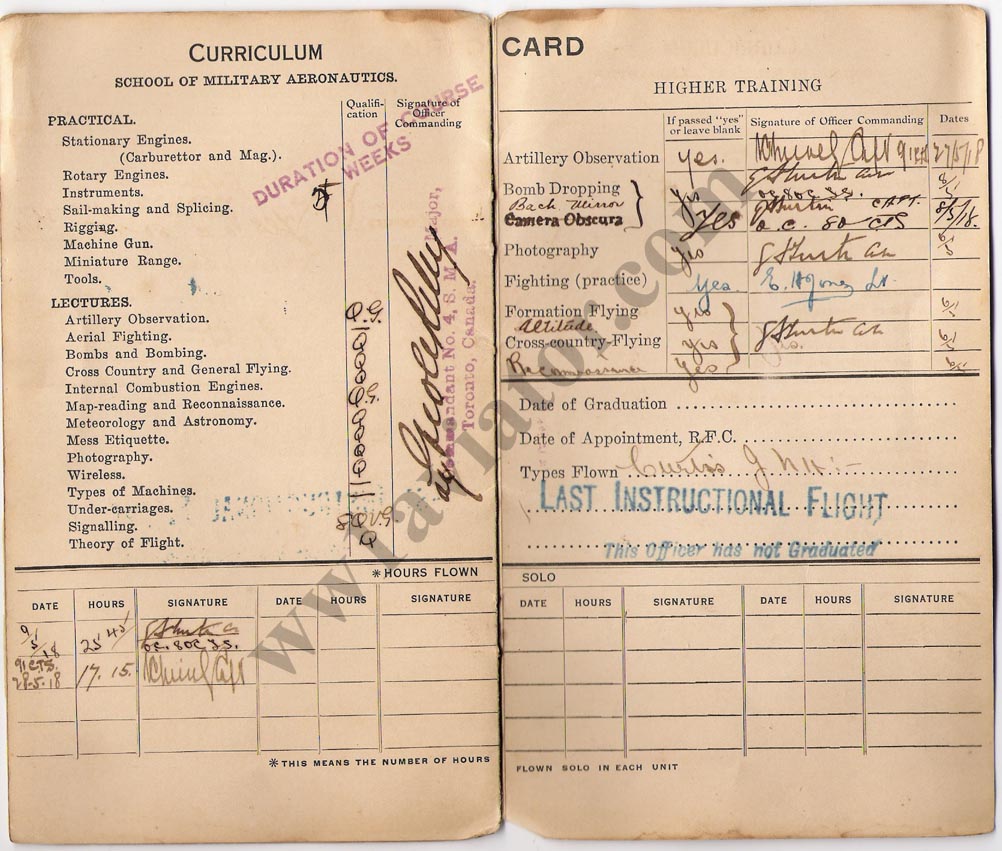 CURRICULUM
SCHOOL OF MILITARY AERONAUTICS.
Qualifi-
cation
Signature of
Officer
Commanding
DURATION OF COURSE
WEEKS
PRACTICAL.
Stationary Engines.
(Carburettor and Mag.).
Rotary Engines.
Instruments.
Sail-making and Splicing.
Rigging.
Machine Gun.
Miniature Range.
Tools.
LECTURES.
Artillery Observation. Q.G.
Aerial Fighting.
Bombs and Bombing.
Cross Country and General Flying.
Internal Combustion Engines.
Map-reading and Reconnaissance. Q.G.
Meteorology and Astronomy.
Mess Etiquette.
Photography.
Wireless.
Types of Machines.
Under-carriages.
Signalling.
Theory of Flight. Q
Major,
Commandant No. 4, S. M. A.
Toronto, Canada.
*HOURS FLOWN
DATE HOURS SIGNATURE DATE HOURS SIGNATURE
9/5/18 25 45
OC. 80 C.T.S.
91 CTS.
28-5-18 17. 15.
*THIS MEANS THE NUMBER OF HOURS
CARD
HIGHER TRAINING
If passed "yes"
or leave blank
Signature of Officer Commanding
Dates
Artillery Observation yes. 27/5/18
Bomb Dropping yes
Back Mirror
Camera Obscura Yes O.C. 80 CTS 8/5/18.
Photography yes
Fighting (practice) yes.
Formation Flying yes
Altitude
Cross-country-Flying yes
Reconnaissance yes
Date of Graduation
Date of Appointment, R.F.C.
Types Flown Curtis J.N.4:-
LAST INSTRUCTIONAL FLIGHT
This Officer has not Graduated
SOLO
DATE HOURS SIGNATURE DATE HOURS SIGNATURE
FLOWN SOLO IN EACH UNIT